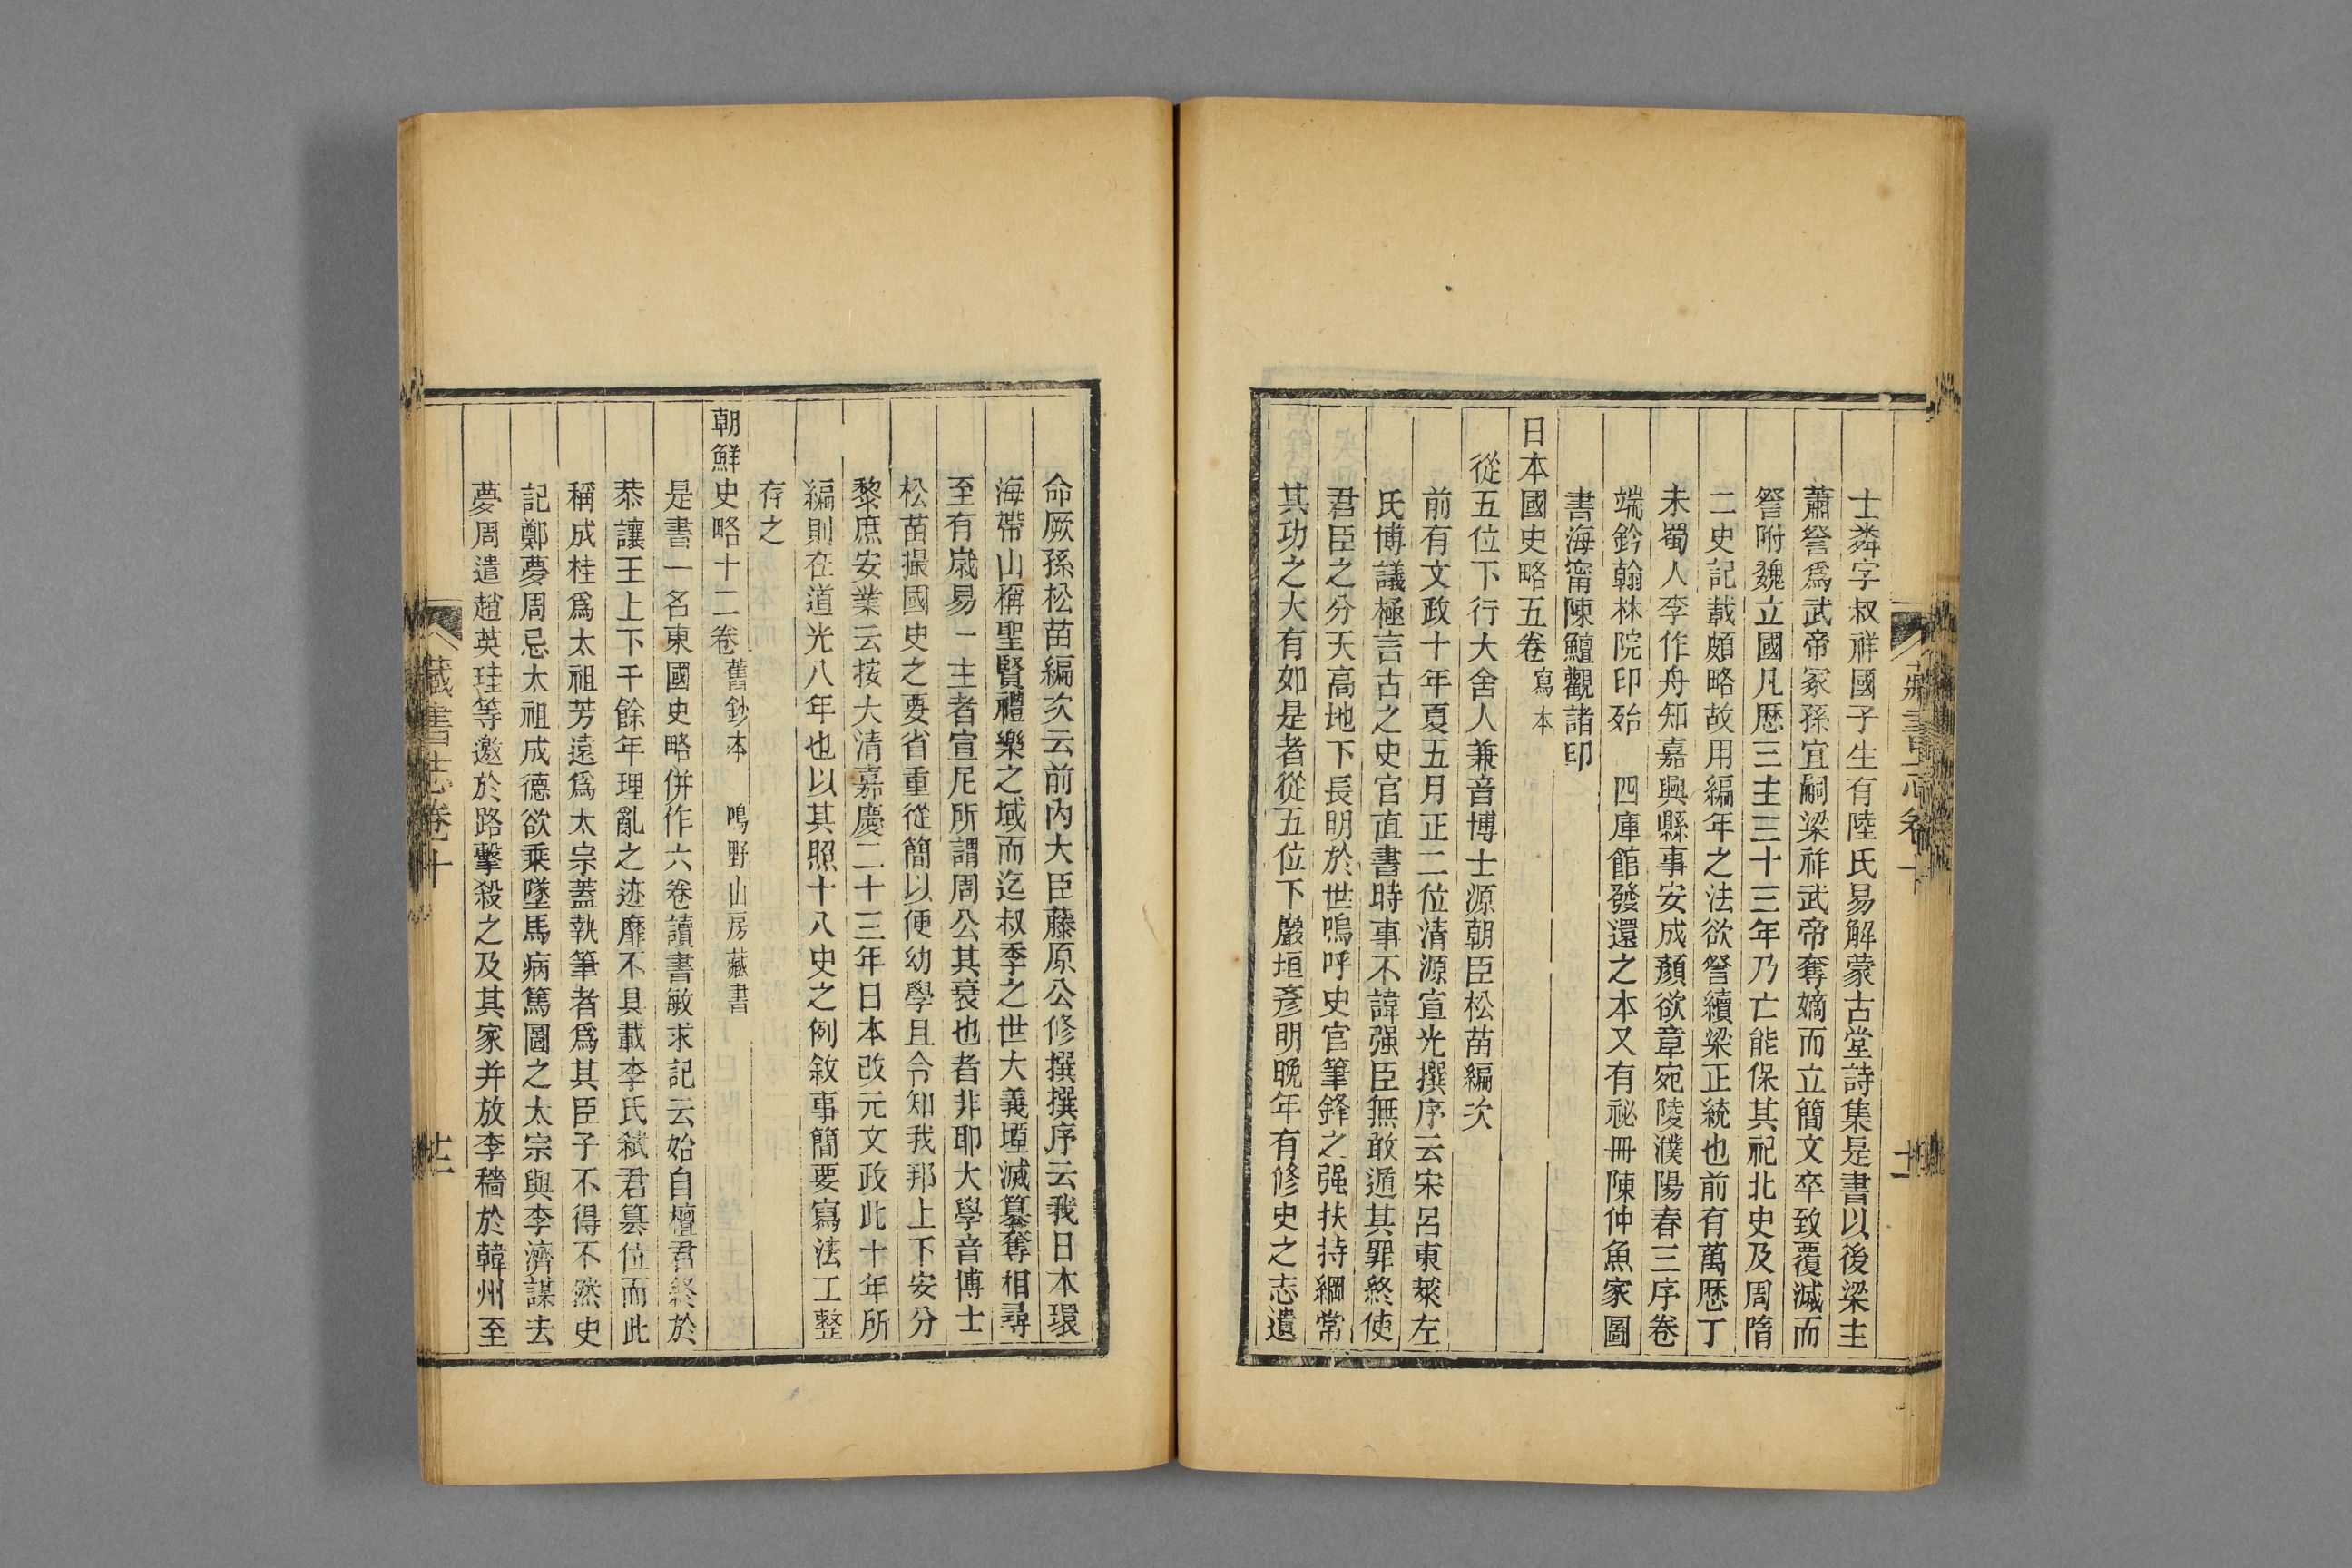 士粦字叔祥國子生有陸氏易解蒙古堂詩集是書以後梁主
蕭詧爲武帝冡孫宜嗣梁祚武帝奪嫡而立簡文卒致覆滅而
詧附魏立國凡歷三主三十三年乃亡能保其祀北史及周隋
二史記載頗略故用編年之法欲詧續梁正統也前有萬歷丁
未蜀人李作舟知嘉興縣事安成顏欲章宛陵濮陽春三序卷
端鈐翰林院印殆　四庫館發還之本又有祕冊陳仲魚家圖
書海甯陳鱣觀諸印
日本國史略五卷寫本
從五位下行大舍人兼音博士源朝臣松苗編次
前有文政十年夏五月正二位清源宣光撰序云宋呂東萊左
氏博議極言古之史官直書時事不諱强臣無敢遁其罪終使
君臣之分天高地下長明於世嗚呼史官筆鋒之强扶持綱常
其功之大有如是者從五位下巖垣彥明晚年有修史之志遺
命厥孫松苗編次云前內大臣藤原公修撰撰序云我日本環
海帶山稱聖賢禮樂之域而迄叔季之世大義堙滅篡奪相尋
至有歲易一主者宣尼所謂周公其衰也者非耶大學音博士
松苗撮國史之要省重從簡以便幼學且令知我邦上下安分
黎庶安業云按大清嘉慶二十三年日本改元文政此十年所
編則在道光八年也以其照十八史之例敘事簡要寫法工整
存之
朝鮮史略十二卷舊鈔本　鳴野山房藏書
是書一名東國史略併作六卷讀書敏求記云始自檀君終於
恭讓王上下千餘年理亂之迹靡不具載李氏弒君篡位而此
稱成桂爲太祖芳遠爲太宗蓋執筆者爲其臣子不得不然史
記鄭夢周忌太祖成德欲乘墜馬病篤圖之太宗與李濟謀去
夢周遣趙英珪等邀於路擊殺之及其家并放李穡於韓州至
藏書志卷十